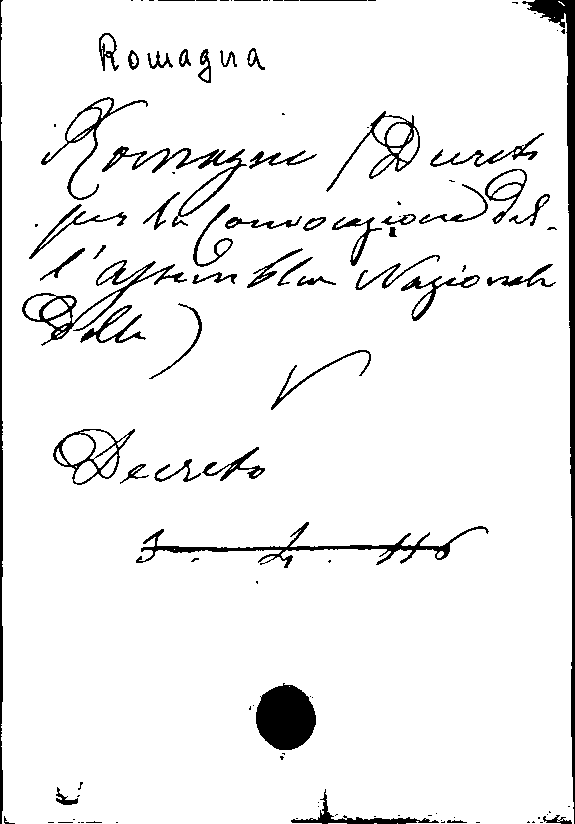 Romagna
Romagne (Decreto
per la Convocazione del-
l'assemblea Nazionale
delle)
V
Decreto
3. 4. 116